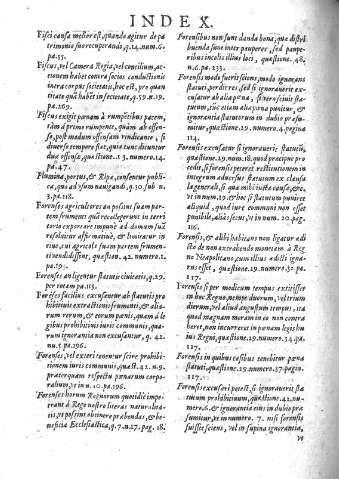 INDEX.
Fisci causa melior est, quando agitur de pa
trimonio suo recuperando, q. 14. num. 6.
pa. 55.
Fiscus, vel Camera Regia, vel concilium, ac
tionem habent contra socios conductionis
intra corpus societatis, hoc est, pro quan
titate quã habẽt in societate, q. 59. n. 19.
pa. 269.
Fiscus exigit pœnam à rumpetibus pacem,
tam à primo rumpente, quàm ab offen-
so, post modum offensam vindicante, si
diverso tempore fiat, quia tunc dicuntur
duæ offensæ, quæstione. 13. numero. 14.
pa. 47.
Flumina, portus, & Ripæ, censentur publi-
ca, quo ad vsum navigandi, q. 30. sub n.
3. pa. 118.
Forenses agricultores an possint suam par-
tem frumenti quã recollegerunt in terri
torio exportare impunè ad domum suã
resolvitur affirmativè, & limitatur in
eius, cui agricola suam partem frumen-
ti vendidisset, quæstion. 42. numero. 1.
pa. 19
Forenses an ligentur statutis civitatis, q. 29.
per totam pa. 113.
Forẽses facilius excusantur ab statutis pro
hibitivis extractionis frumenti, & alio-
rum rerum, & eorum pœnis, quàm à le
gibus prohibitivis iuris communis, quo-
rum ignorantia non excusantur, q. 42.
n. 9. pa. 196.
Forenses, vel exteri tenentur scire prohibi-
tionem iuris communis, quæst. 42. n. 9.
præterquam respectu pœnarum corpo-
ralium, vt in n. 10. pa. 196.
Forenses horum Regnorum quotidiè impe-
trant à Rege nostro literas naturalita-
tis, vt possint obtinere præbendas, & be-
neficia Ecclesiastica, q. 7. n. 27. pag. 18.
Forensibus non sunt danda bona, quæ distri
buenda sunt inter pauperes, sed paupe-
ribus incolis illius loci, quæstione. 48.
n. 6. pa. 233.
Forensis modo fuerit sciens, modo ignorans
statuti, perdit res sed si ignoraverit ex-
cusatur ab alia pœna, si verò scivit statu-
tum, sic etiam alia pœna punitur, &
ignorantia statutorum in dubio præsu-
mitur, quæstione. 29. numero. 4. pagina
114.
Forensis excusatur si ignoraverit statutũ,
quæstione. 29. num. 18. quod præcipuè pro
cedit, si forensis peteret restitutionem in
integrum adversus statutum ex clausa
la generali, si qua mihi iusta causa, &c,
vt in num. 19. & hoc si statutum puniret
aliquid, quod iure communi non esset
punibile, aliàs secus, vt in num. 20. pag.
116.
Forensis, & alibi habitans non ligatur edi
cto de non extrahendo monetam à Reg
no Neapolitano, cum illius edicti igna-
rus esset, quæstione. 29. num. 32. pa.
117.
Forensis si per modicum tempus extitisset
in hoc Regno, nempe duorum, vel trium
dierum, vel aliud angustum tempus, ita
quod magnam moram in eo non contra
heret, non incurreret in pœnam legis hu
ius Regni, quæstio. 29. numero. 34. pa.
117.
Forensis in quibus casibus tenebitur pœna
statuti, quæstione. 29. numero. 37. pagin.
117.
Forensis excusari potest, si ignoraverit sta
tutum prohibitivum, quæstione. 42. nu-
mero. 6. & ignorantia eius in dubio præ
sumitur, vt in numero 7. nisi forensis
fuisset sciens, vel in supina ignorantia,
vt